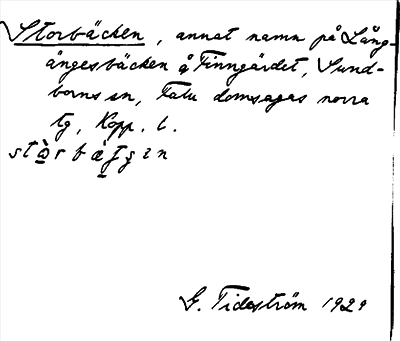 Storbäcken, annat namn på Lång-
ängesbäcken å Finngärdet, Sund-
borns sn, Falu domsagas norra
tg, Kopp. l.
G. Tideström 1929